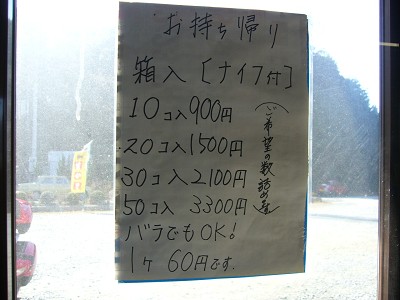 お持ち帰り
箱入[ナイフ付]
10コ入900円
20コ入1500円
30コ入2100円
50コ入 3300円
バラでもOK!
1ケ 60円です.